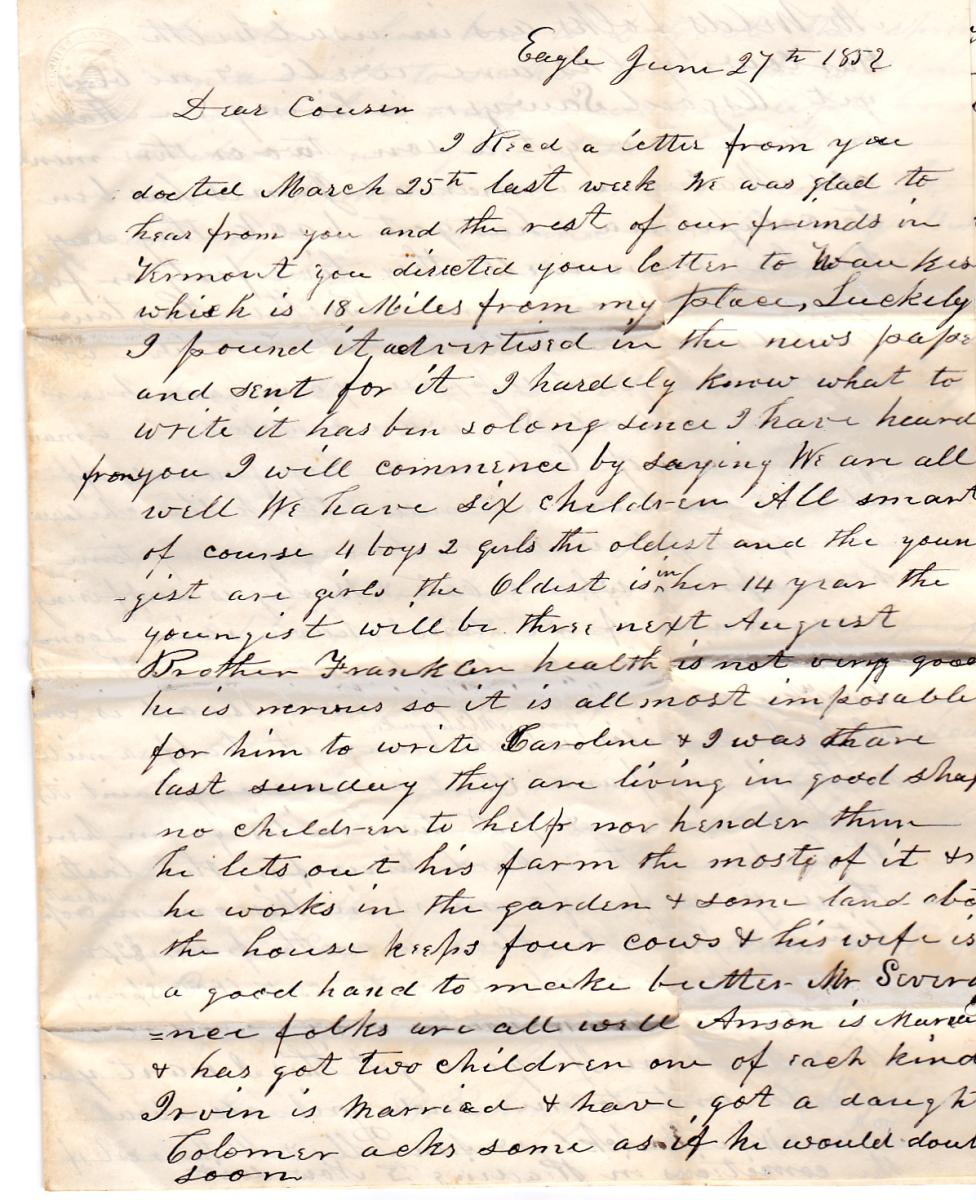 Eagle June 27th 1852
Dear Cousin
I Recd a letter from you
docted March 25th last week We was glad to
hear from you and the rest of our friends in
Vermont you directed your letter to Waukes
which is 18 Miles from my place, Luckely
I found it advertised in the news pape
and sent for it I hardely know what to
write it has bin solong since I have heard
from you I will commence by saying We are all
well We have six children All smart
of course 4 boys 2 girls the oldest and the youn
-gist are girls the Oldest is in her 14 year the
youngist will be three next August
Brother Franklin health is not very good
he is nervus so it is all most imposable
for him to write Caroline & I was thare
last sunday they are living in good shap
no children to help nor hender them
he lets out his farm the most of it &
he works in the garden & some land abo
the house keeps four cows & his wife is
a good hand to make butter Mr Severa
=nce folks are all well Anson is Maria
& has got two children one of each kind
Irvin is Married & have got a daught
Colomer acks some as if he would
soon